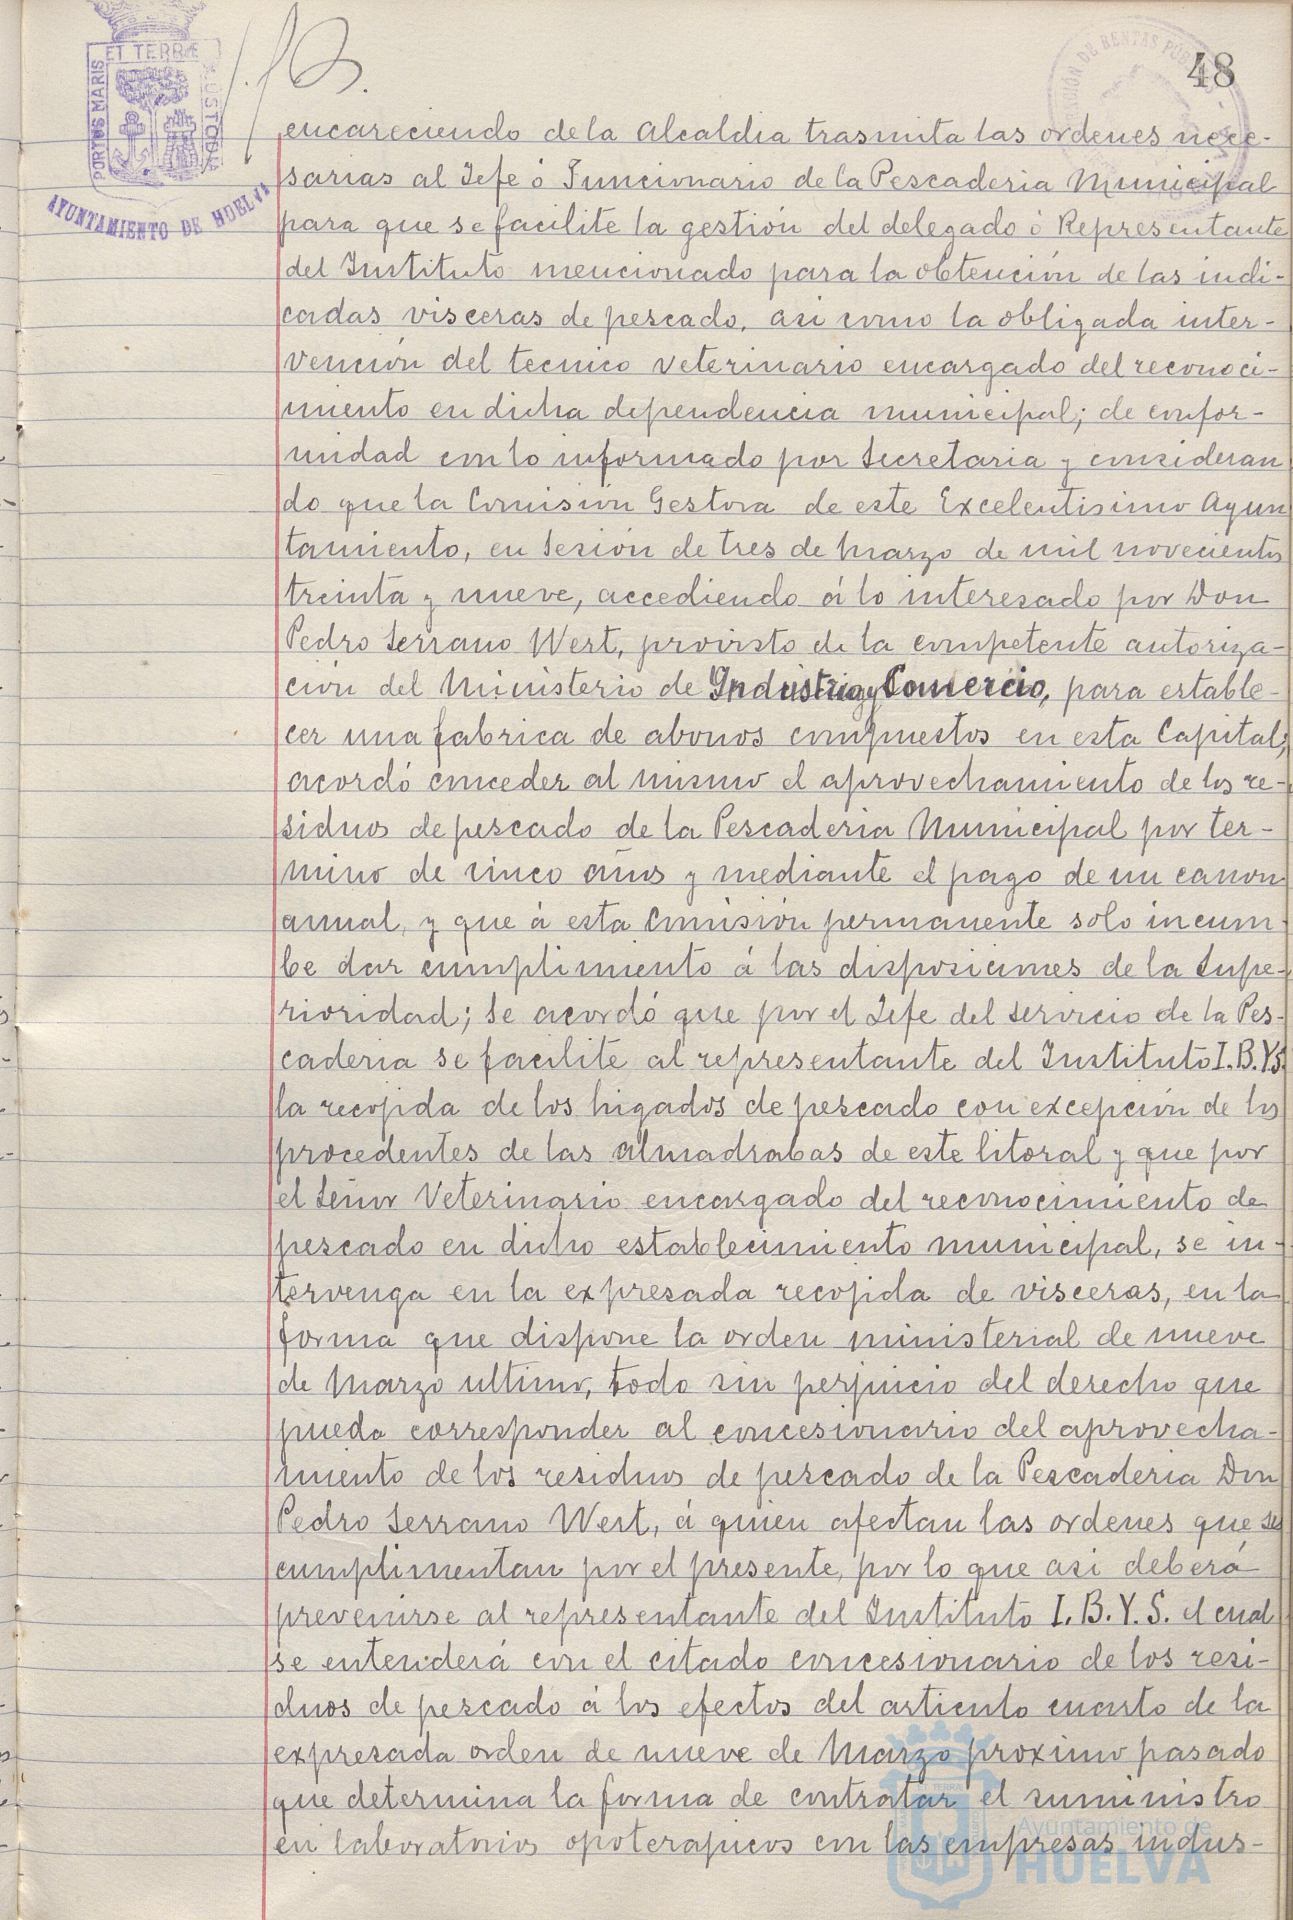 48
ET TERRÆ
PORTUS MARIS
CUSTODIA
AYUNTAMIENTO DE HUELVA
encareciendo de la Alcaldia trasmita las ordenes nece-
sarias al Jefe ó Funcionario de la Pescaderia Municipal
para que se facilite la gestión del delegado ó Representante
del Instituto mencionado para la obtención de las indi-
cadas visceras de pescado, asi como la obligada inter-
vención del tecnico Veterinario encargado del reconoci-
miento en dicha dependencia municipal; de confor-
midad con lo informado por Secretaria y consideran
do que la Comisión Gestora de este Excelentisimo Ayun
tamiento, en Sesión de tres de Marzo de mil novecientos
treinta y nueve, accediendo á lo interesado por Don
Pedro Serrano West, provisto de la competente autoriza-
ción del Ministerio de Industria y Comercio, para estable-
cer una fabrica de abonos compuestos en esta Capital;
acordó conceder al mismo el aprovechamiento de los re-
siduos de pescado de la Pescaderia Municipal por ter-
mino de cinco años y mediante el pago de un canon
anual, y que á esta Comisión permanente solo incum-
be dar cumplimiento á las disposiciones de la Supe-
rioridad; Se acordó que por el Jefe del servicio de la Pes-
caderia se facilite al representante del Instituto I.B.YS.
la recojida de los higados de pescado con excepción de los
procedentes de las almadrabas de este litoral y que por
el Señor Veterinario encargado del reconocimiento de
pescado en dicho establecimiento municipal, se in-
tervenga en la expresada recojida de visceras, en la
forma que dispone la orden ministerial de nueve
de Marzo ultimo, todo sin perjuicio del derecho que
pueda corresponder al concesionario del aprovecha-
miento de los residuos de pescado de la Pescaderia Don
Pedro Serrano West, á quien afectan las ordenes que se
cumplimentan por el presente, por lo que asi deberá
prevenirse al representante del Instituto I.B.Y.S. el cual
se entenderá con el citado concesionario de los resi-
duos de pescado á los efectos del articulo cuarto de la
expresada orden de nueve de Marzo proximo pasado
que determina la forma de contratar el suministro
en laboratorios opoterapicos con las empresas indus-
Ayuntamiento de
HUELVA